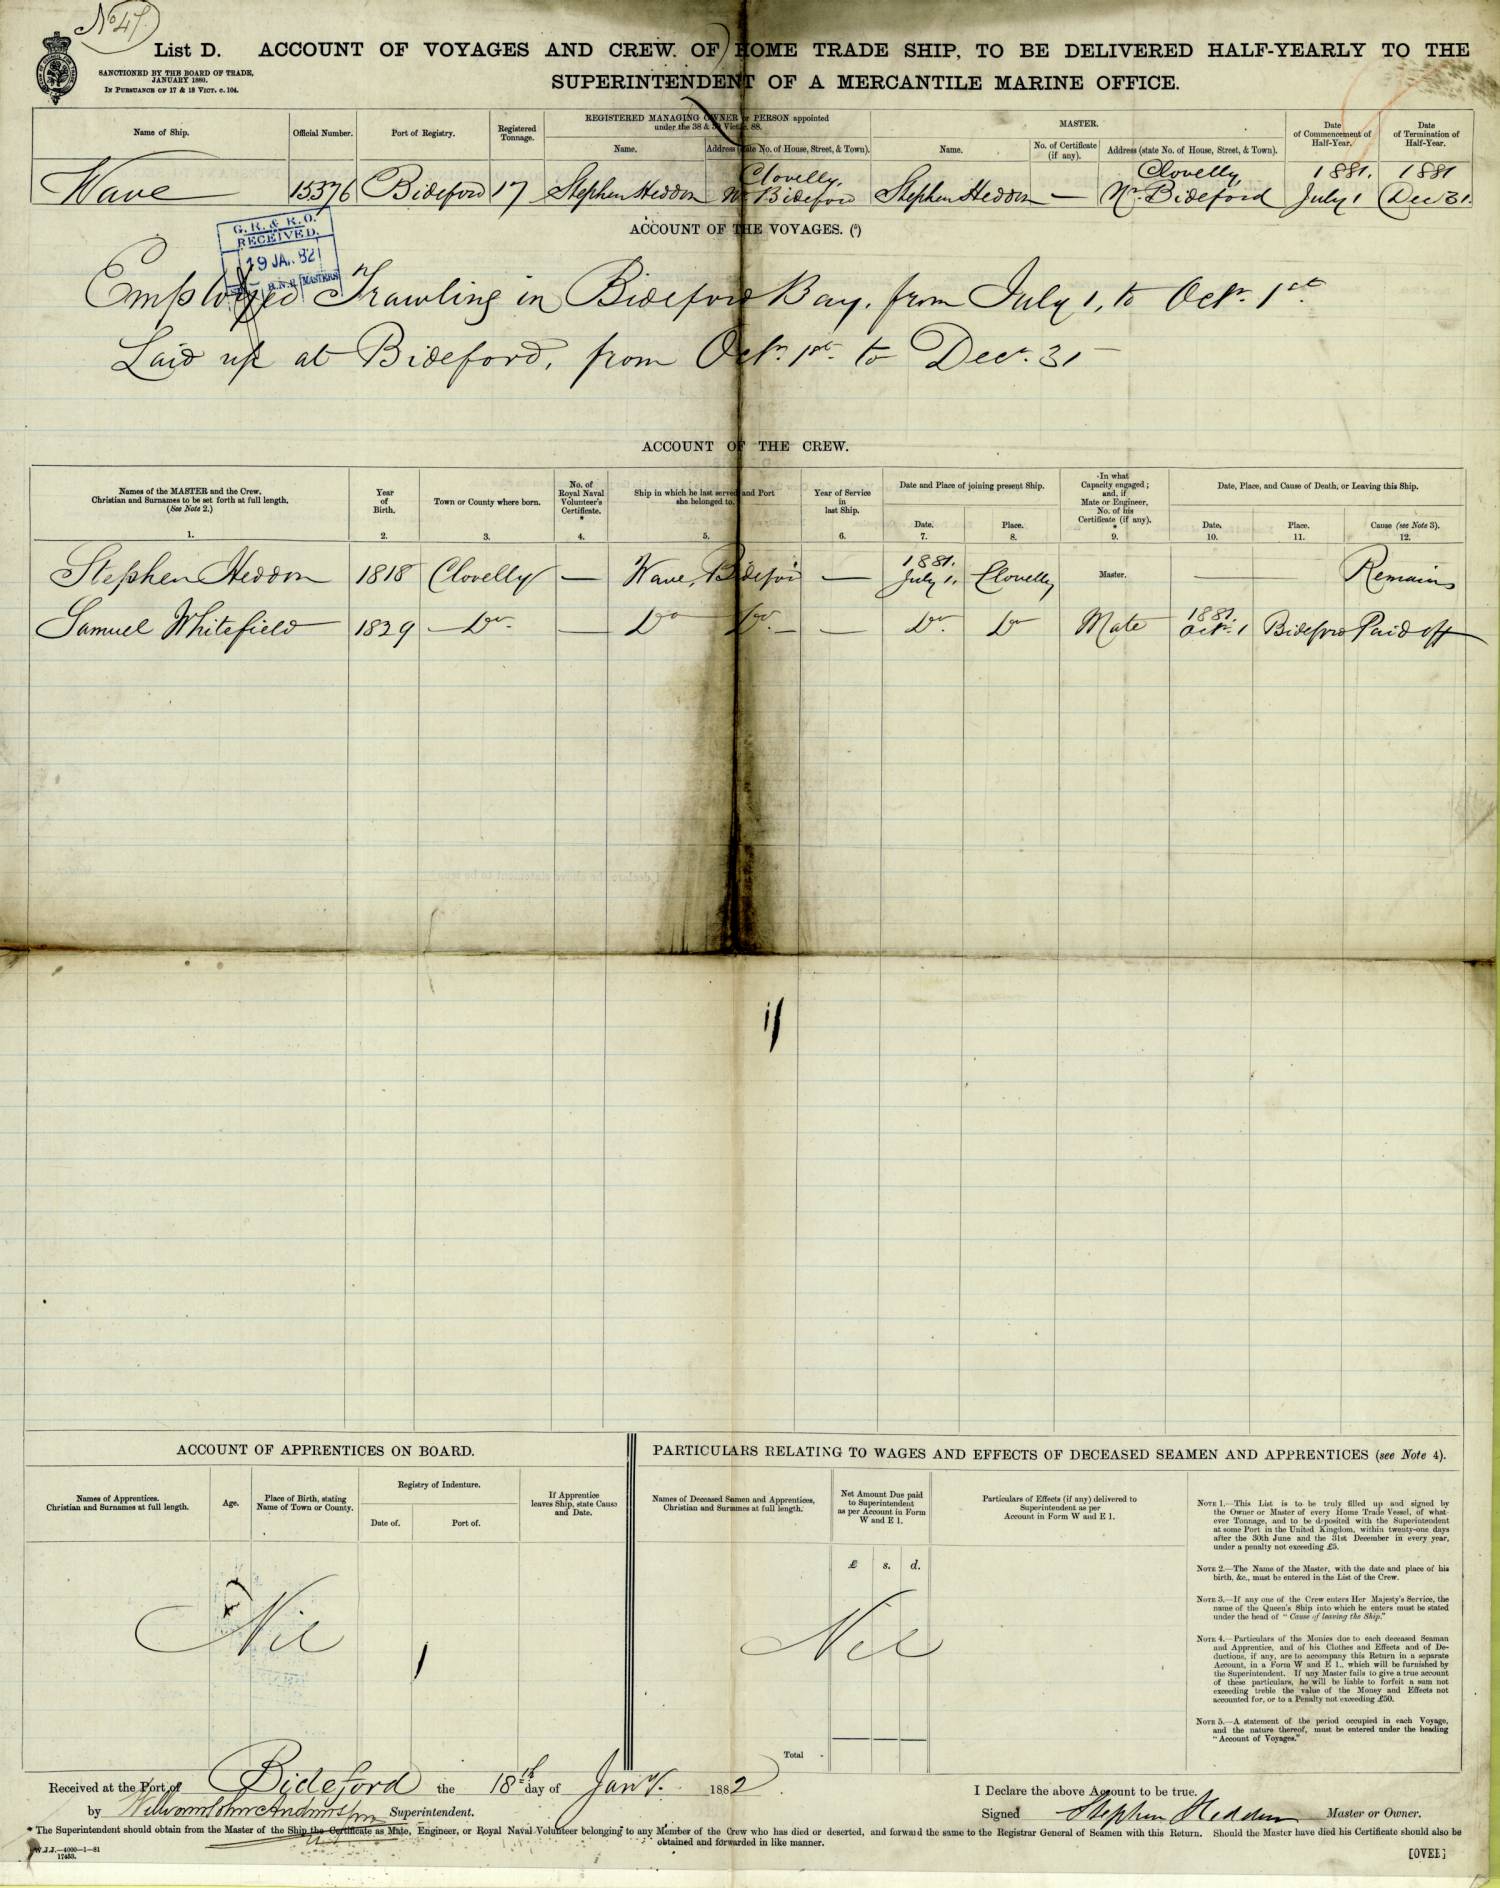 No 47.
List D. ACCOUNT OF VOYAGES AND CREW OF HOME TRADE SHIP, TO BE DELIVERED HALF-YEARLY TO THE
SUPERINTENDENT OF A MERCANTILE MARINE OFFICE.
SANCTIONED BY THE BOARD OF TRADE,
JANUARY 1880.
IN PURSUANCE OF 17 & 18 VICT. c. 104.
Name of Ship. Official Number. Port of Registry. Registered Tonnage. REGISTERED MANAGING OWNER or PERSON appointed under the 38 & 39 Vict. c. 88. MASTER. Date of Commencement of Half-Year. Date of Termination of Half-Year.
Name. Address (state No. of House, Street, & Town). Name. No. of Certificate (if any). Address (state No. of House, Street, & Town).
Clovelly. Clovelly, 1881. 1881
Wave 15376 Bideford 17 Stephen Heddon Nr Bideford Stephen Heddon — Nr Bideford July 1 Dec 31.
G. R. & R. O.
RECEIVED.
19 JA. 82
R.N.R MASTERS
ACCOUNT OF THE VOYAGES. (5)
Employed Trawling in Bideford Bay, from July 1, to Octr. 1st.
Laid up at Bideford, from Octr. 1st. to Decr. 31
ACCOUNT OF THE CREW.
Names of the MASTER and the Crew. Christian and Surnames to be set forth at full length. (See Note 2.) Year of Birth. Town or County where born. No. of Royal Naval Volunteer's Certificate. * Ship in which he last served and Port she belonged to. Year of Service in last Ship. Date and Place of joining present Ship. In what Capacity engaged; and, if Mate or Engineer, No. of his Certificate (if any). * Date, Place, and Cause of Death, or Leaving this Ship.
Date. Place. Date. Place. Cause (see Note 3).
1. 2. 3. 4. 5. 6. 7. 8. 9. 10. 11. 12.
1881.
Stephen Heddon 1818 Clovelly — Wave, Bideford — July 1, Clovelly Master. — Remains
1881.
Samuel Whitefield 1829 Do — Do Do — Do Do Mate Octr. 1 Bideford Paid off
ACCOUNT OF APPRENTICES ON BOARD.
Names of Apprentices. Christian and Surnames at full length. Age. Place of Birth, stating Name of Town or County. Registry of Indenture. If Apprentice leaves Ship, state Cause and Date.
Date of. Port of.
Nil
PARTICULARS RELATING TO WAGES AND EFFECTS OF DECEASED SEAMEN AND APPRENTICES (see Note 4).
Names of Deceased Seamen and Apprentices, Christian and Surnames at full length. Net Amount Due paid to Superintendent as per Account in Form W and E 1. Particulars of Effects (if any) delivered to Superintendent as per Account in Form W and E 1.
£ s. d.
Nil
Total
NOTE 1.—This List is to be truly filled up and signed by
the Owner or Master of every Home Trade Vessel, of what-
ever Tonnage, and to be deposited with the Superintendent
at some Port in the United Kingdom, within twenty-one days
after the 30th June and the 31st December in every year,
under a penalty not exceeding £5.
NOTE 2.—The Name of the Master, with the date and place of his
birth, &c., must be entered in the List of the Crew.
NOTE 3.—If any one of the Crew enters Her Majesty's Service, the
name of the Queen's Ship into which he enters must be stated
under the head of "Cause of leaving the Ship."
NOTE 4.—Particulars of the Monies due to each deceased Seaman
and Apprentice, and of his Clothes and Effects and of De-
ductions, if any, are to accompany this Return in a separate
Account, in a Form W and E 1., which will be furnished by
the Superintendent. If any Master fails to give a true account
of these particulars, he will be liable to forfeit a sum not
exceeding treble the value of the Money and Effects not
accounted for, or to a Penalty not exceeding £50.
NOTE 5.—A statement of the period occupied in each Voyage,
and the nature thereof, must be entered under the heading
"Account of Voyages."
Received at the Port of Bideford the 18th day of Jany. 1882
by William John Superintendent.
I Declare the above Account to be true.
Signed Stephen Heddon Master or Owner.
* The Superintendent should obtain from the Master of the Ship the Certificate as Mate, Engineer, or Royal Naval Volunteer belonging to any Member of the Crew who has died or deserted, and forward the same to the Registrar General of Seamen with this Return. Should the Master have died his Certificate should also be
obtained and forwarded in like manner.
W.J.J.—4000—1—81
17453.
[OVER]